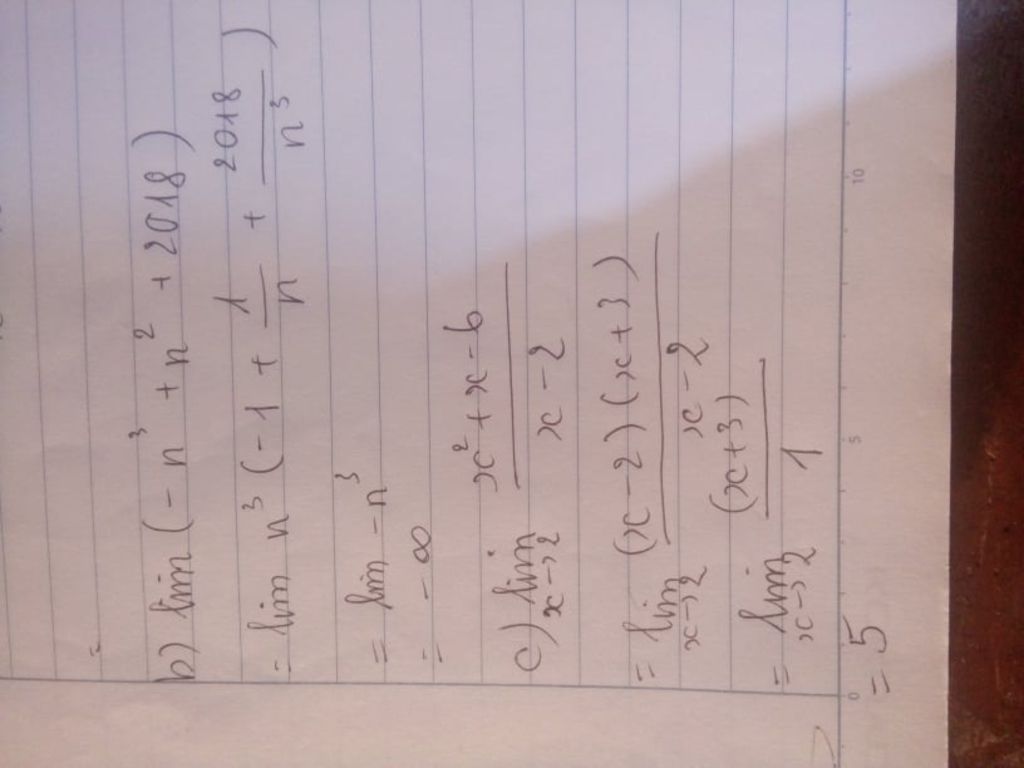 b) lim (- n³ + n² + 2018)
= lim n³ (- 1 + 1/n + 2018/n³)
= lim - n³
= - ∞
c) lim x→2 x² + x - 6 / x - 2
= lim x→2 (x - 2) (x + 3) / x - 2
= lim x→2 (x + 3) / 1
= 5
0 5 10